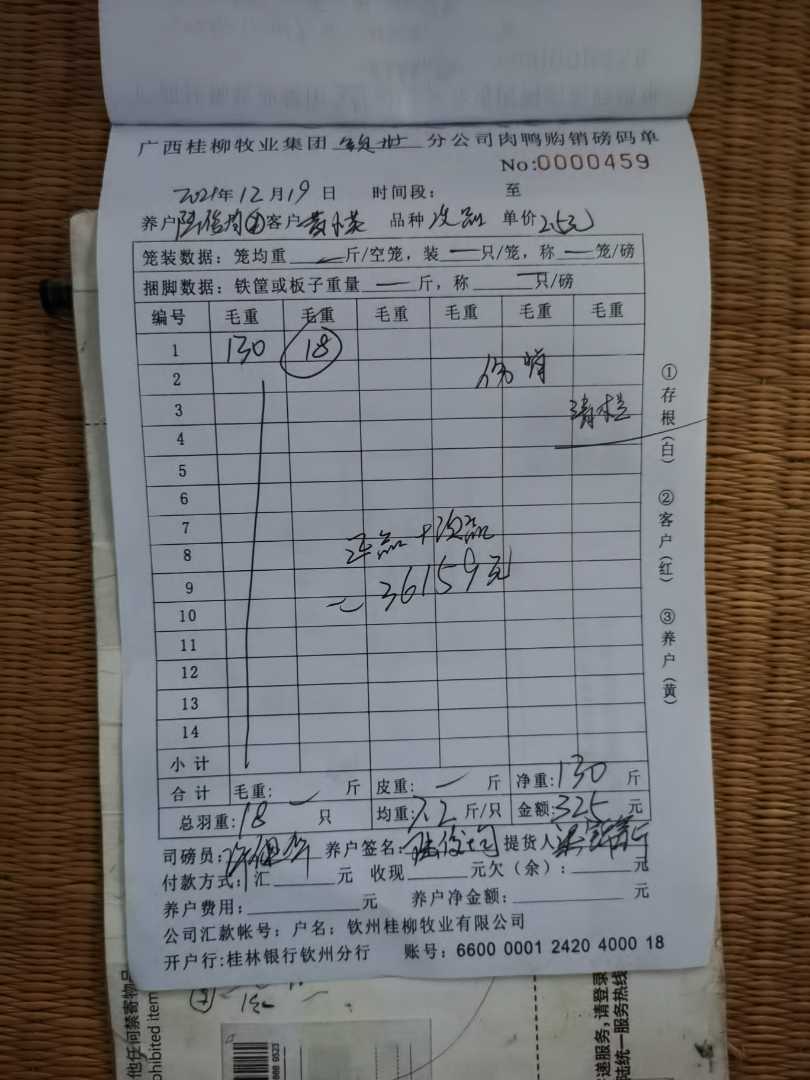 广西桂柳牧业集团 分公司肉鸭购销磅码单
No:0000459
2021年12月19日 时间段: 至
养户 客户 品种 次品 单价2.5元
笼装数据: 笼均重 — 斤/空笼, 装 — 只/笼, 称 — 笼/磅
捆脚数据: 铁筐或板子重量 — 斤, 称 — 只/磅
编号 毛重 毛重 毛重 毛重 毛重 毛重
1 130 18
2
3 清栏
4
5
6
7
正品+次品
8
9 = 36159元
10
11
12
13
14
小计
合计 毛重: — 斤 皮重: — 斤 净重:130 斤
总羽重:18 只 均重:7.2 斤/只 金额:325 元
司磅员: 养户签名:陆俊均 提货人
付款方式:汇 元 收现 元欠(余): 元
养户费用: 元 养户净金额: 元
公司汇款帐号: 户名: 钦州桂柳牧业有限公司
开户行:桂林银行钦州分行 账号: 6600 0001 2420 4000 18
①存根(白) ②客户(红) ③养户(黄)
他任何禁寄物品
ohibited item
递服务,请登录
陆统一服务热线